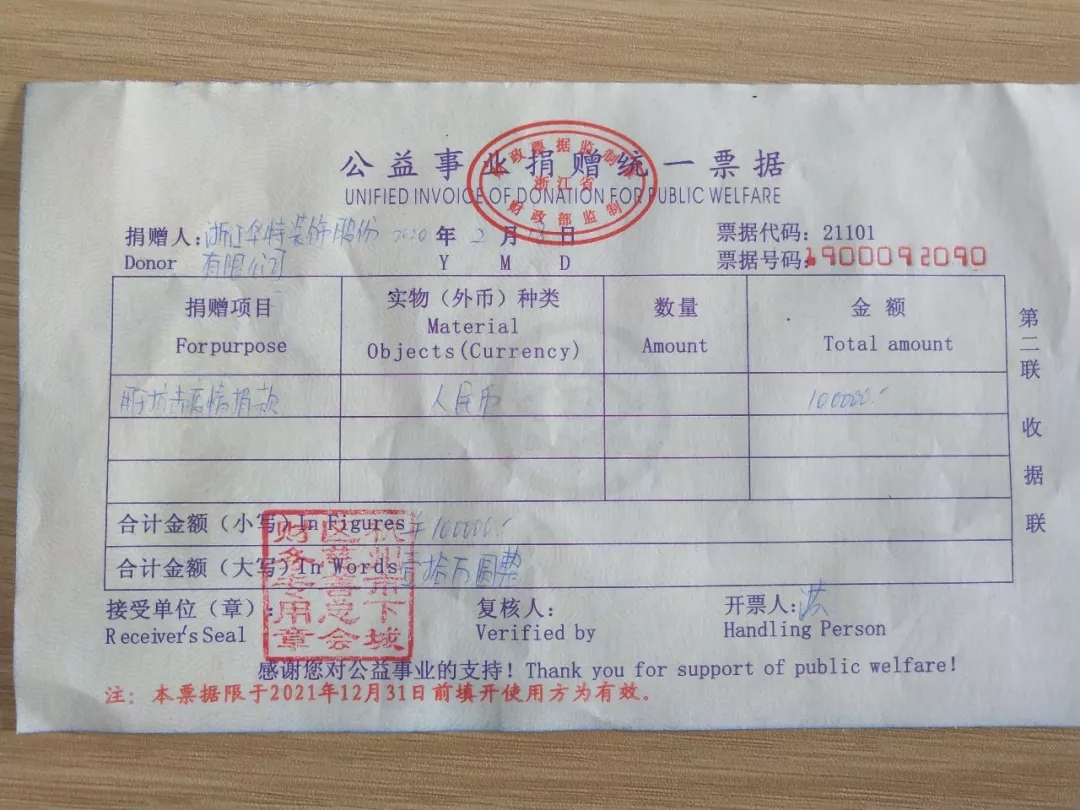 公益事业捐赠统一票据
UNIFIED INVOICE OF DONATION FOR PUBLIC WELFARE
财政票据监制章
浙江省
财政部监制
捐赠人：浙江华特装饰股份 2020 年 2 月 18 日 票据代码：21101
Donor 有限公司 Y M D 票据号码：1900092090
捐赠项目 实物（外币）种类 数量 金 额
Forpurpose Material Objects(Currency) Amount Total amount
用于抗击疫情捐款 人民币 100000.-
合计金额（小写）In Figures ￥100000.-
合计金额（大写）In Words 壹拾万圆整
接受单位（章）： 复核人： 开票人：洪
Receiver's Seal Verified by Handling Person
杭州市下城区慈善总会财务专用章
感谢您对公益事业的支持！Thank you for support of public welfare!
注：本票据限于2021年12月31日前填开使用方为有效。
第二联 收据联